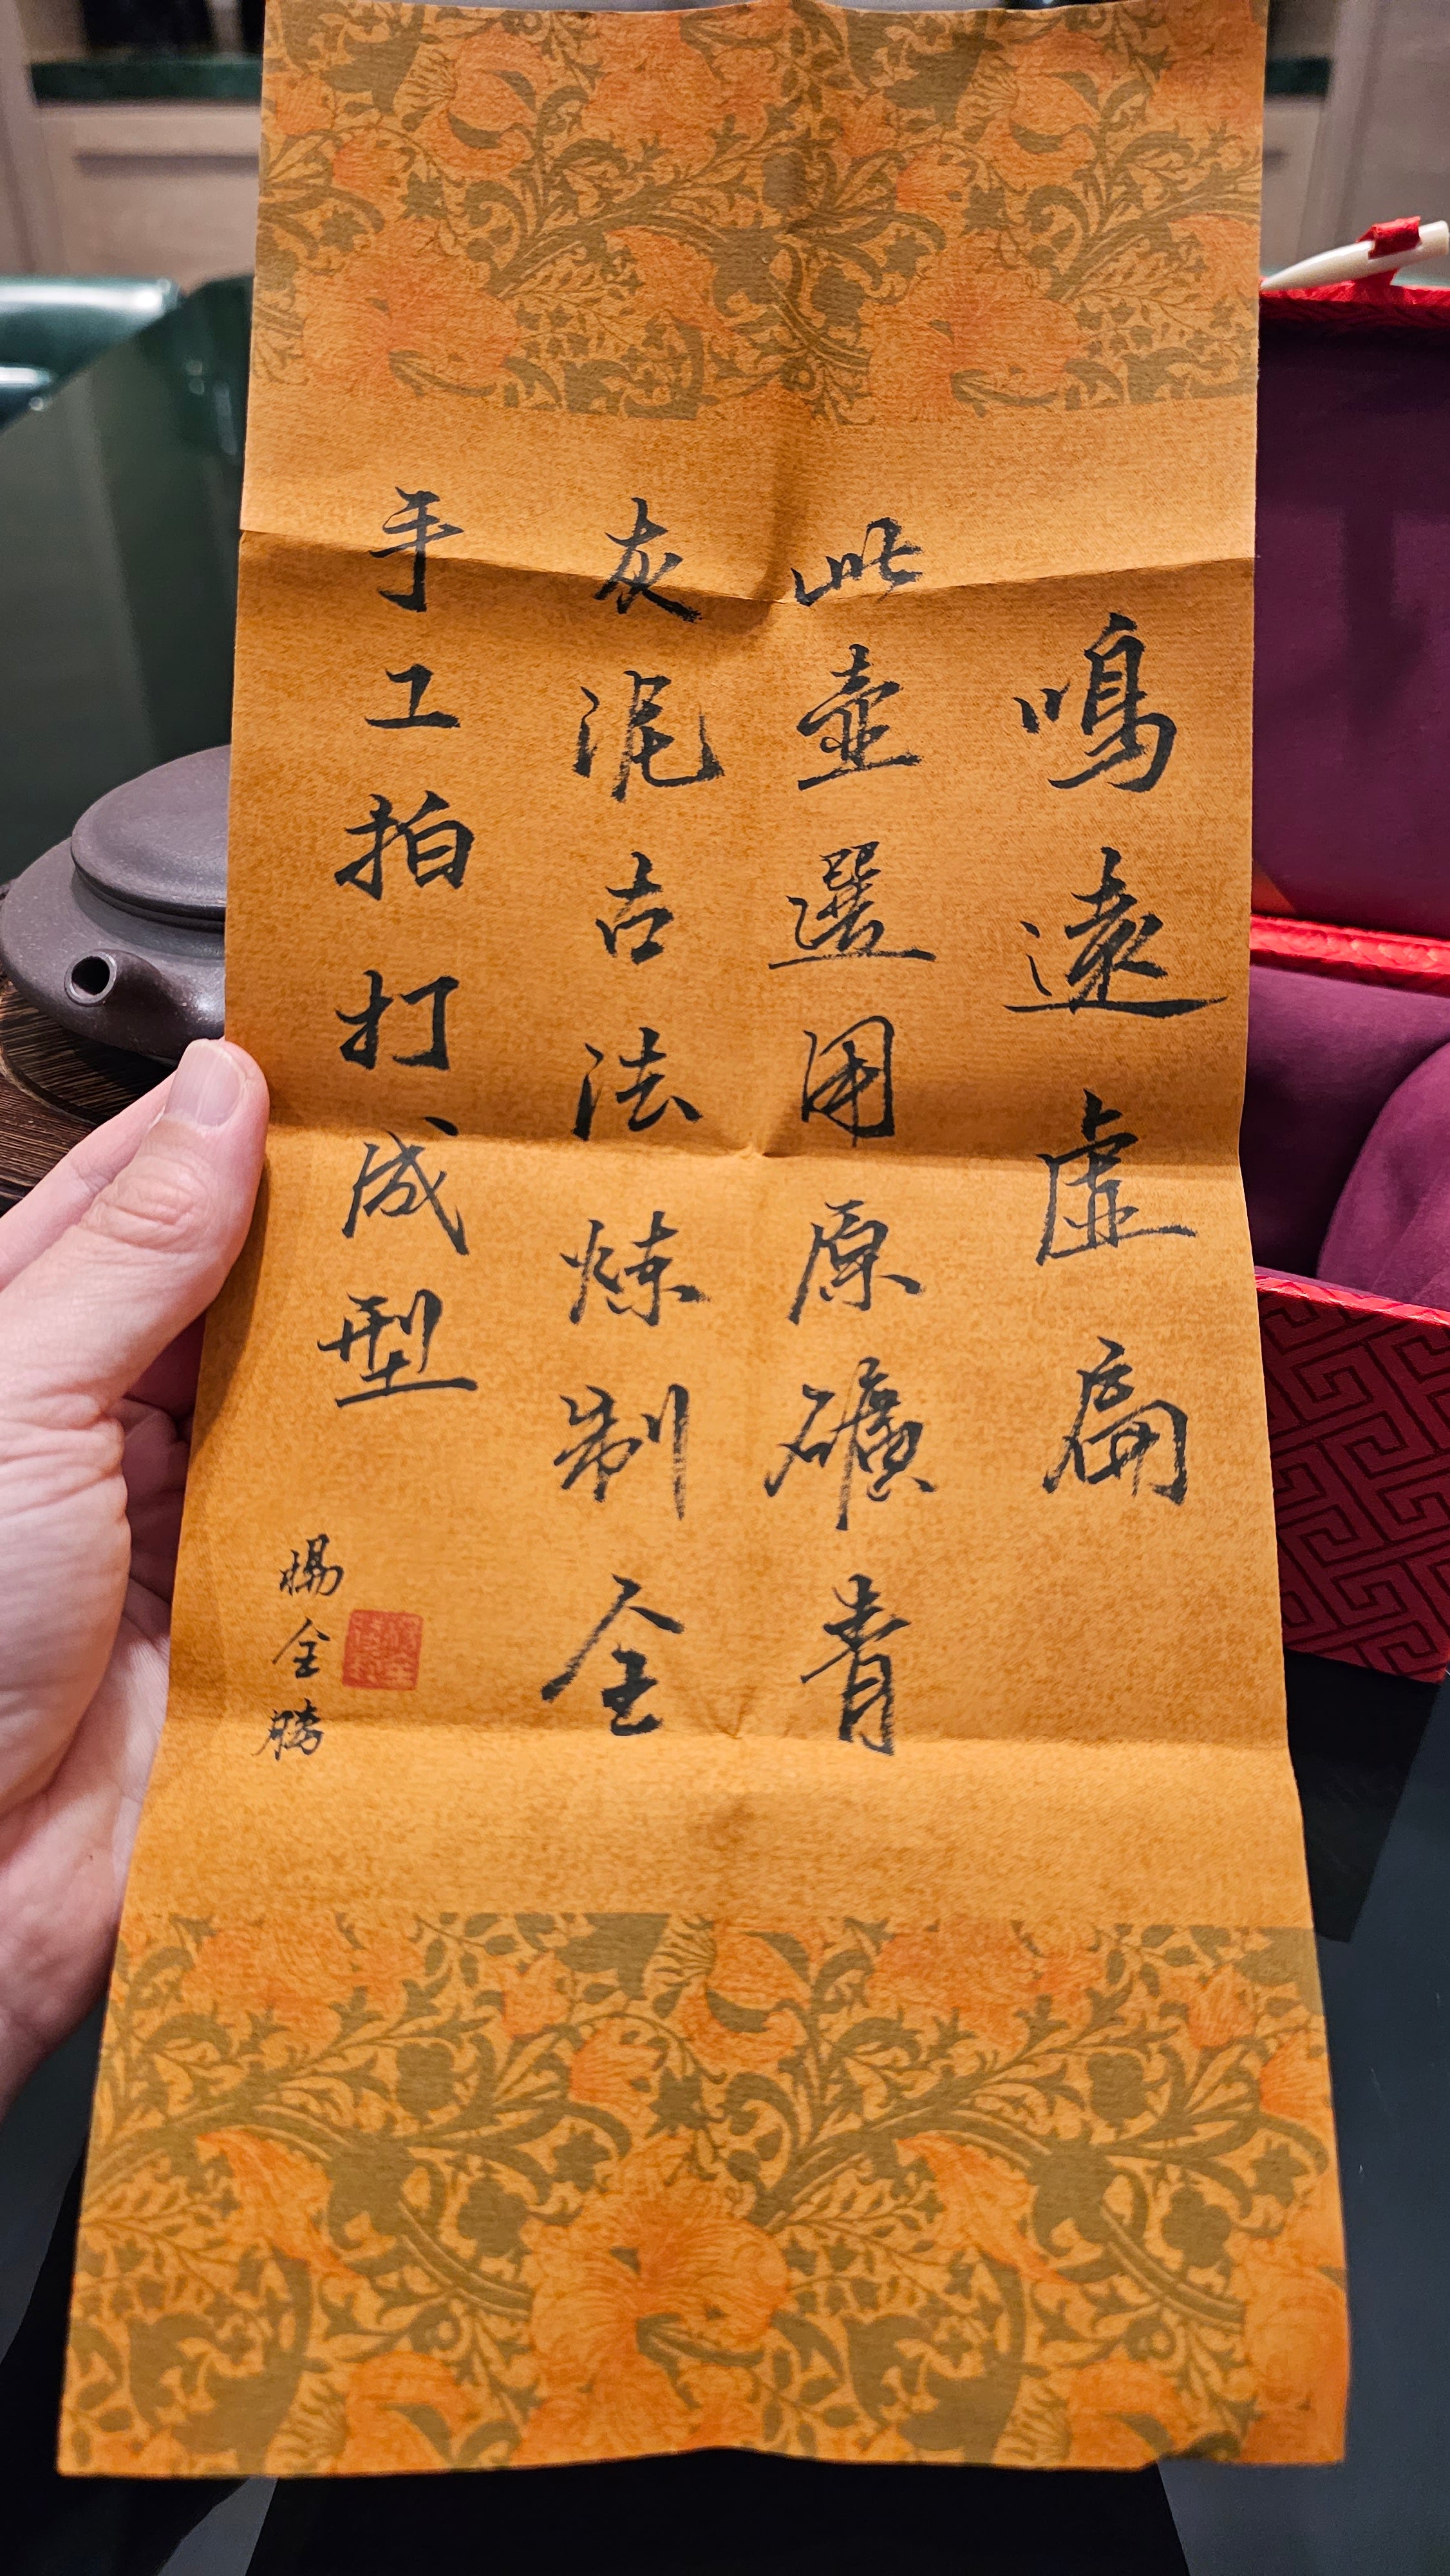 鳴遠虛扁
此壺選用原礦青
灰泥古法炼制全
手工拍打成型
全勝